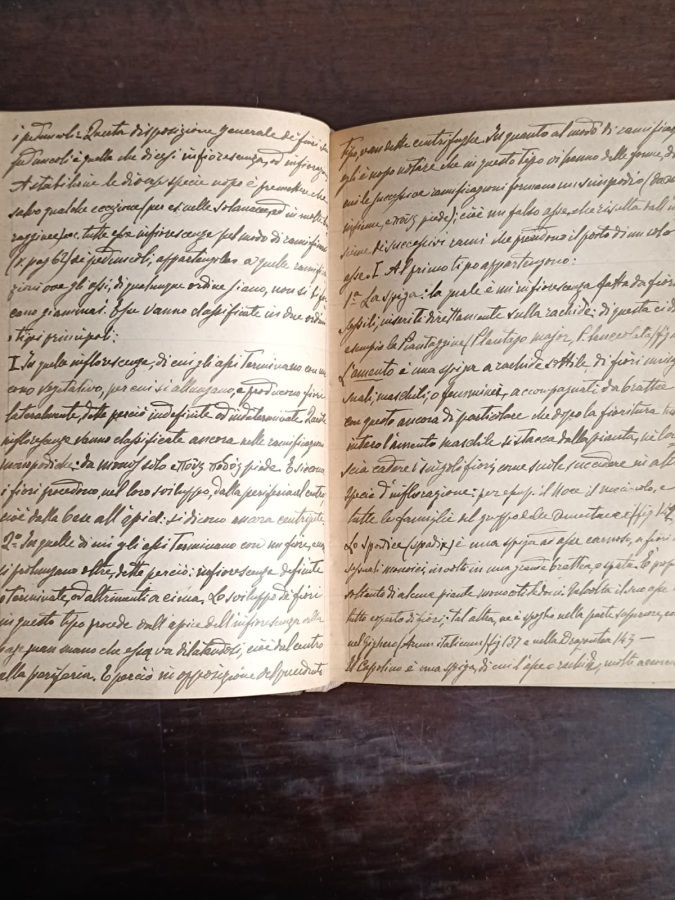 i peduncoli = Questa disposizione generale di fiori su
peduncoli è quella che dicesi infiorescenza, od inflorazione
A stabilirne le diverse specie uopo è premettere che
salvo qualche eccezione (per es. nelle Solanacee, ed in molte
ragginee) ec. tutte le infiorescenze pel modo di ramificarsi
(v. pag 62) de' peduncoli, appartengono a quelle ramifica-
zioni ove gli assi, di qualunque ordine siano, non si
cano giammai. Esse vanno classificate in due ordini
o tipi principali:
I. In quelle inflorescenze, di cui gli assi terminano con un
cono vegetativo, per cui si allungano, e producono fiori
lateralmente, dette perciò indefinite od indeterminate.
inflorescenze vanno classificate ancora nelle ramificazioni
monopodiche: da monos solo πους ποδος piede. E siccome
i fiori procedono, nel loro sviluppo, dalla periferia al centro
cioè dalla base all'apice: si dicono ancora centripete
2° In quelle di cui gli assi terminano con un fiore, e non
si prolungano oltre, dette perciò: infiorescenze definite
o terminate, od altrimenti a cima. Lo sviluppo de' fiori
in questo tipo procede dall'apice dell'infiorescenza alla
base man mano che essa va dilatandosi, cioè dal centro
alla periferia. E perciò in opposizione del precedente
tipo, vanno dette centrifughe. In quanto al modo di ramificarsi
egli è uopo notare che in questo tipo vi hanno delle forme, di
cui le successive ramificazioni formano un simpodio (da συν
insieme, e πους piede); cioè un falso asse, che risulta dall'in-
sieme di successivi rami che prendono il porto di un solo
asse. I. Al primo tipo appartengono:
1° La spiga: la quale è un'inflorescenza fatta da fiori
sessili, inseriti direttamente sulla rachide: di questa ci dà
esempio la Piantaggine (Plantago major, P. lanceolata) fig
L'amento è una spiga a rachide sottile di fiori unises-
suali maschili, o femminei, accompagnati da brattee
con questo ancora di particolare che dopo la fioritura l'
intero l'amento maschile si stacca dalla pianta, nè la-
scia cadere i singoli fiori come suole succedere in altre
specie di inflorazione: per esempi il Noce il nocciolo, e
tutte le famiglie del gruppo delle Amentacee (fig 142
Lo spadice (spadix) è una spiga ad asse carnoso, a fiori
sessuali monoici, involti in una grande brattea, o spata. È proprio
soltanto di alcune piante monocotiledoni. Talvolta il suo asse è
tutto coperto di fiori; tal altra, ne è spoglio nella parte superiore, come
nel Gighero (Arum italicum) (fig 137 e nella Dragontea 143 —
Il Capolino è una spiga, di cui l'asse o rachide, molto accorciato